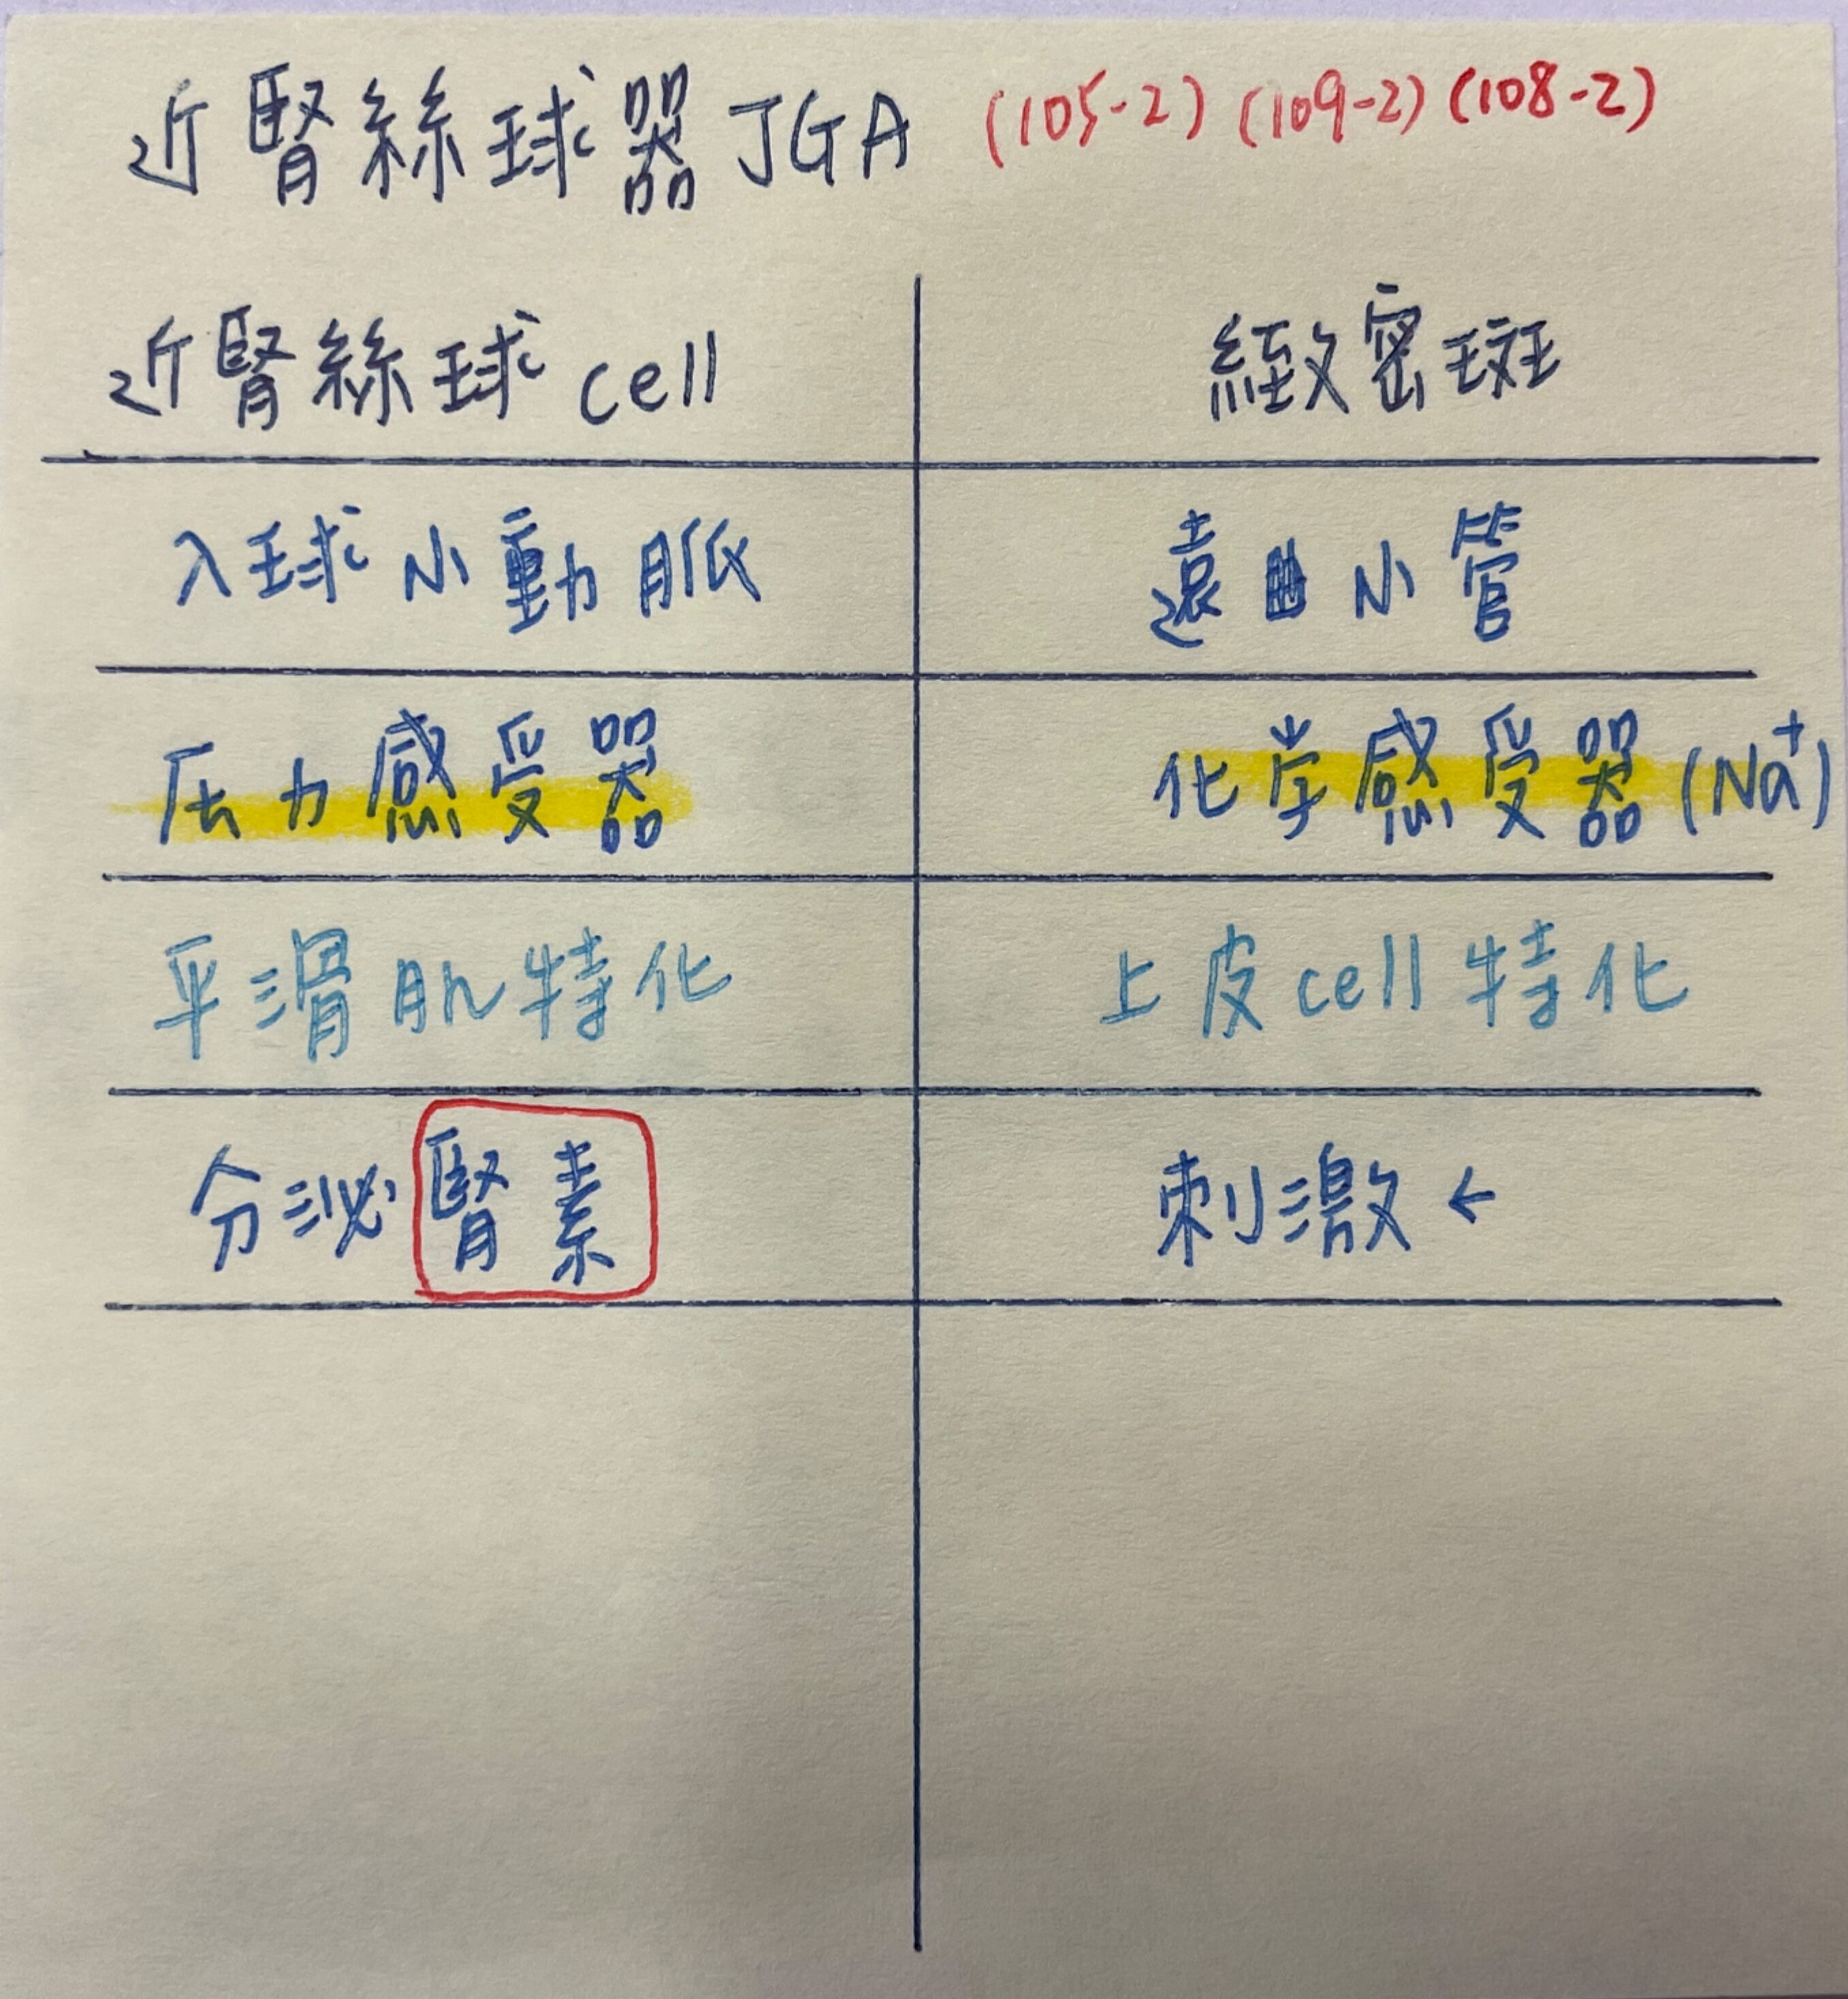 近腎絲球器 JGA (105-2) (109-2) (108-2)
近腎絲球 cell 緻密斑
入球小動脈 遠曲小管
压力感受器 化学感受器 (Na⁺)
平滑肌特化 上皮cell特化
分泌腎素 刺激 ←